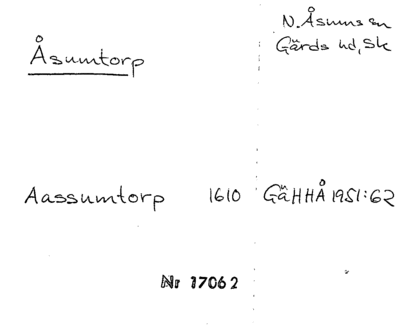 N. Åsums sn
Gärds hd, Sk
Åsumtorp
Aassumtorp 1610 GäHHÅ 1951:62
Nr 17062